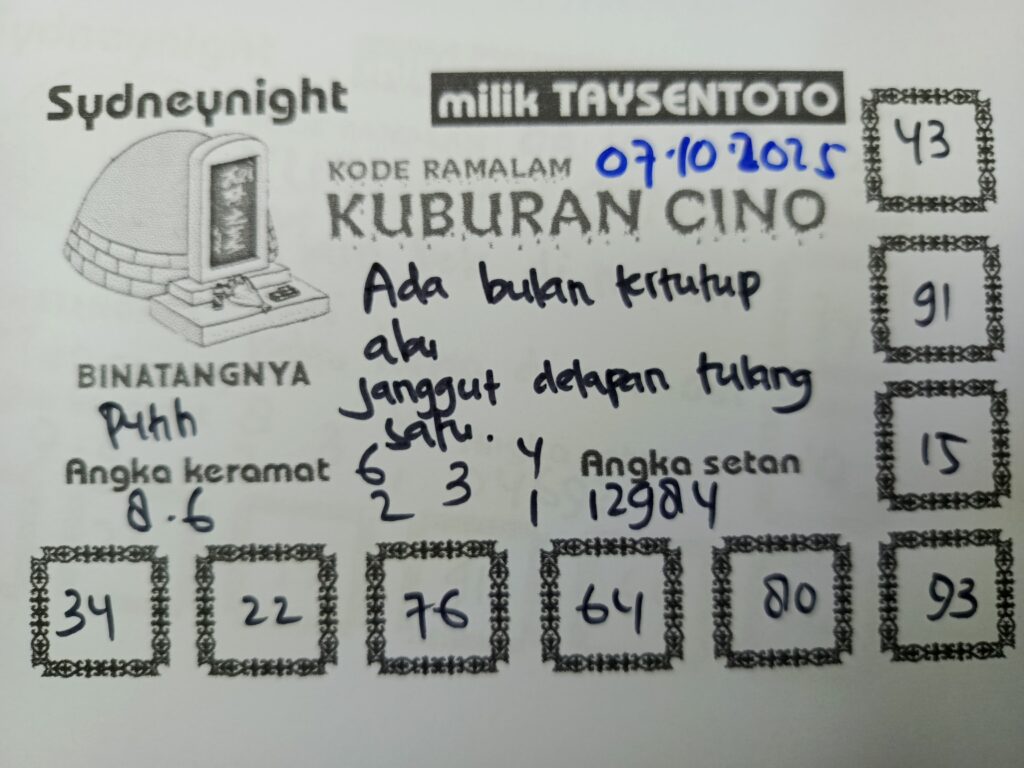 Sydneynight
milik TAYSENTOTO
KODE RAMALAM
07.10.2025
KUBURAN CINO
Ada bulan tertutup
abu
janggut delapan tulang
satu.
BINATANGNYA
Angka keramat
8.6
6 3 4
2 1
Angka setan
12984
43
91
15
34
22
76
64
80
93